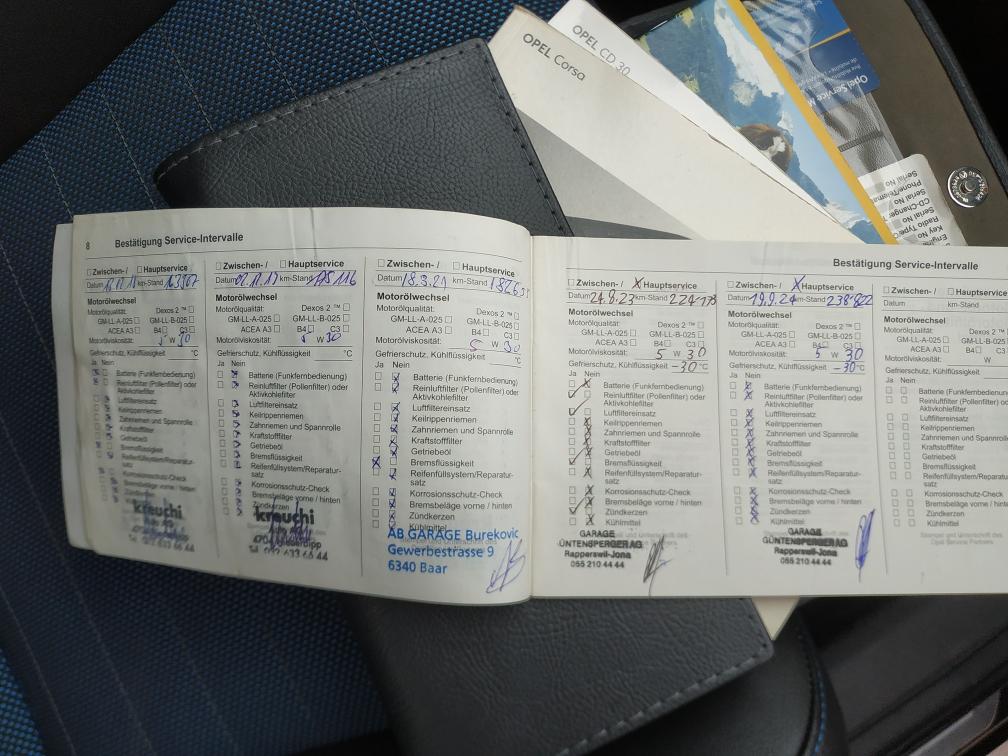 OPEL Corsa
OPEL CD 30
Opel Service
Serial No
Phone/Telema
CD-Changer
Serial No
Radio Type
Key No
8 Bestätigung Service-Intervalle
Zwischen-/ Hauptservice
Datum km-Stand
Motorölwechsel
Motorölqualität: Dexos 2 ™
GM-LL-A-025 GM-LL-B-025
ACEA A3 B4 C3
Motorölviskosität: 5 W 30
Gefrierschutz, Kühlflüssigkeit °C
Ja Nein
Batterie (Funkfernbedienung)
Reinluftfilter (Pollenfilter) oder
Aktivkohlefilter
Luftfiltereinsatz
Keilrippenriemen
Zahnriemen und Spannrolle
Kraftstofffilter
Getriebeöl
Bremsflüssigkeit
Reifenfüllsystem/Reparatur-
satz
Korrosionsschutz-Check
Bremsbeläge vorne / hinten
Zündkerzen
krauchi
Zwischen-/ Hauptservice
Datum km-Stand
Motorölwechsel
Motorölqualität: Dexos 2 ™
GM-LL-A-025 GM-LL-B-025
ACEA A3 B4 C3
Motorölviskosität: W 30
Gefrierschutz, Kühlflüssigkeit °C
Ja Nein
Batterie (Funkfernbedienung)
Reinluftfilter (Pollenfilter) oder
Aktivkohlefilter
Luftfiltereinsatz
Keilrippenriemen
Zahnriemen und Spannrolle
Kraftstofffilter
Getriebeöl
Bremsflüssigkeit
Reifenfüllsystem/Reparatur-
satz
Korrosionsschutz-Check
Bremsbeläge vorne / hinten
Zündkerzen
krauchi
Tel. 032 633 66 44
Zwischen-/ Hauptservice
Datum 18.3.21 km-Stand
Motorölwechsel
Motorölqualität: Dexos 2 ™
GM-LL-A-025 GM-LL-B-025
ACEA A3 B4 C3
Motorölviskosität: 5 W 30
Gefrierschutz, Kühlflüssigkeit °C
Ja Nein
Batterie (Funkfernbedienung)
Reinluftfilter (Pollenfilter) oder
Aktivkohlefilter
Luftfiltereinsatz
Keilrippenriemen
Zahnriemen und Spannrolle
Kraftstofffilter
Getriebeöl
Bremsflüssigkeit
Reifenfüllsystem/Reparatur-
satz
Korrosionsschutz-Check
Bremsbeläge vorne / hinten
Zündkerzen
Kühlmittel
AB GARAGE Burekovic
Gewerbestrasse 9
6340 Baar
Bestätigung Service-Intervalle
Zwischen-/ X Hauptservice
Datum 24.8.23 km-Stand
Motorölwechsel
Motorölqualität: Dexos 2 ™
GM-LL-A-025 GM-LL-B-025
ACEA A3 B4 C3
Motorölviskosität: 5 W 30
Gefrierschutz, Kühlflüssigkeit -30 °C
Ja Nein
Batterie (Funkfernbedienung)
Reinluftfilter (Pollenfilter) oder
Aktivkohlefilter
Luftfiltereinsatz
Keilrippenriemen
Zahnriemen und Spannrolle
Kraftstofffilter
Getriebeöl
Bremsflüssigkeit
Reifenfüllsystem/Reparatur-
satz
Korrosionsschutz-Check
Bremsbeläge vorne / hinten
Zündkerzen
Kühlmittel
GARAGE
GÜNTENSPERGER AG
Rapperswil-Jona
055 210 44 44
Zwischen-/ X Hauptservice
Datum 19.9.24 km-Stand 238'822
Motorölwechsel
Motorölqualität: Dexos 2 ™
GM-LL-A-025 GM-LL-B-025
ACEA A3 B4 C3
Motorölviskosität: 5 W 30
Gefrierschutz, Kühlflüssigkeit -30 °C
Ja Nein
Batterie (Funkfernbedienung)
Reinluftfilter (Pollenfilter) oder
Aktivkohlefilter
Luftfiltereinsatz
Keilrippenriemen
Zahnriemen und Spannrolle
Kraftstofffilter
Getriebeöl
Bremsflüssigkeit
Reifenfüllsystem/Reparatur-
satz
Korrosionsschutz-Check
Bremsbeläge vorne / hinten
Zündkerzen
Kühlmittel
GARAGE
GÜNTENSPERGER AG
Rapperswil-Jona
055 210 44 44
Zwischen-/ Hauptservice
Datum km-Stand
Motorölwechsel
Motorölqualität: Dexos 2
GM-LL-A-025 GM-LL-B-025
ACEA A3 B4
Motorölviskosität: W
Gefrierschutz, Kühlflüssigkeit
Ja Nein
Batterie (Funkfernbedienung
Reinluftfilter (Pollenfilter) oder
Aktivkohlefilter
Luftfiltereinsatz
Keilrippenriemen
Zahnriemen und Spannrolle
Kraftstofffilter
Getriebeöl
Bremsflüssigkeit
Reifenfüllsystem/Reparatur-
satz
Korrosionsschutz-Check
Bremsbeläge vorne / hinten
Zündkerzen
Kühlmittel
Stempel und Unterschrift des
Opel Service Partners